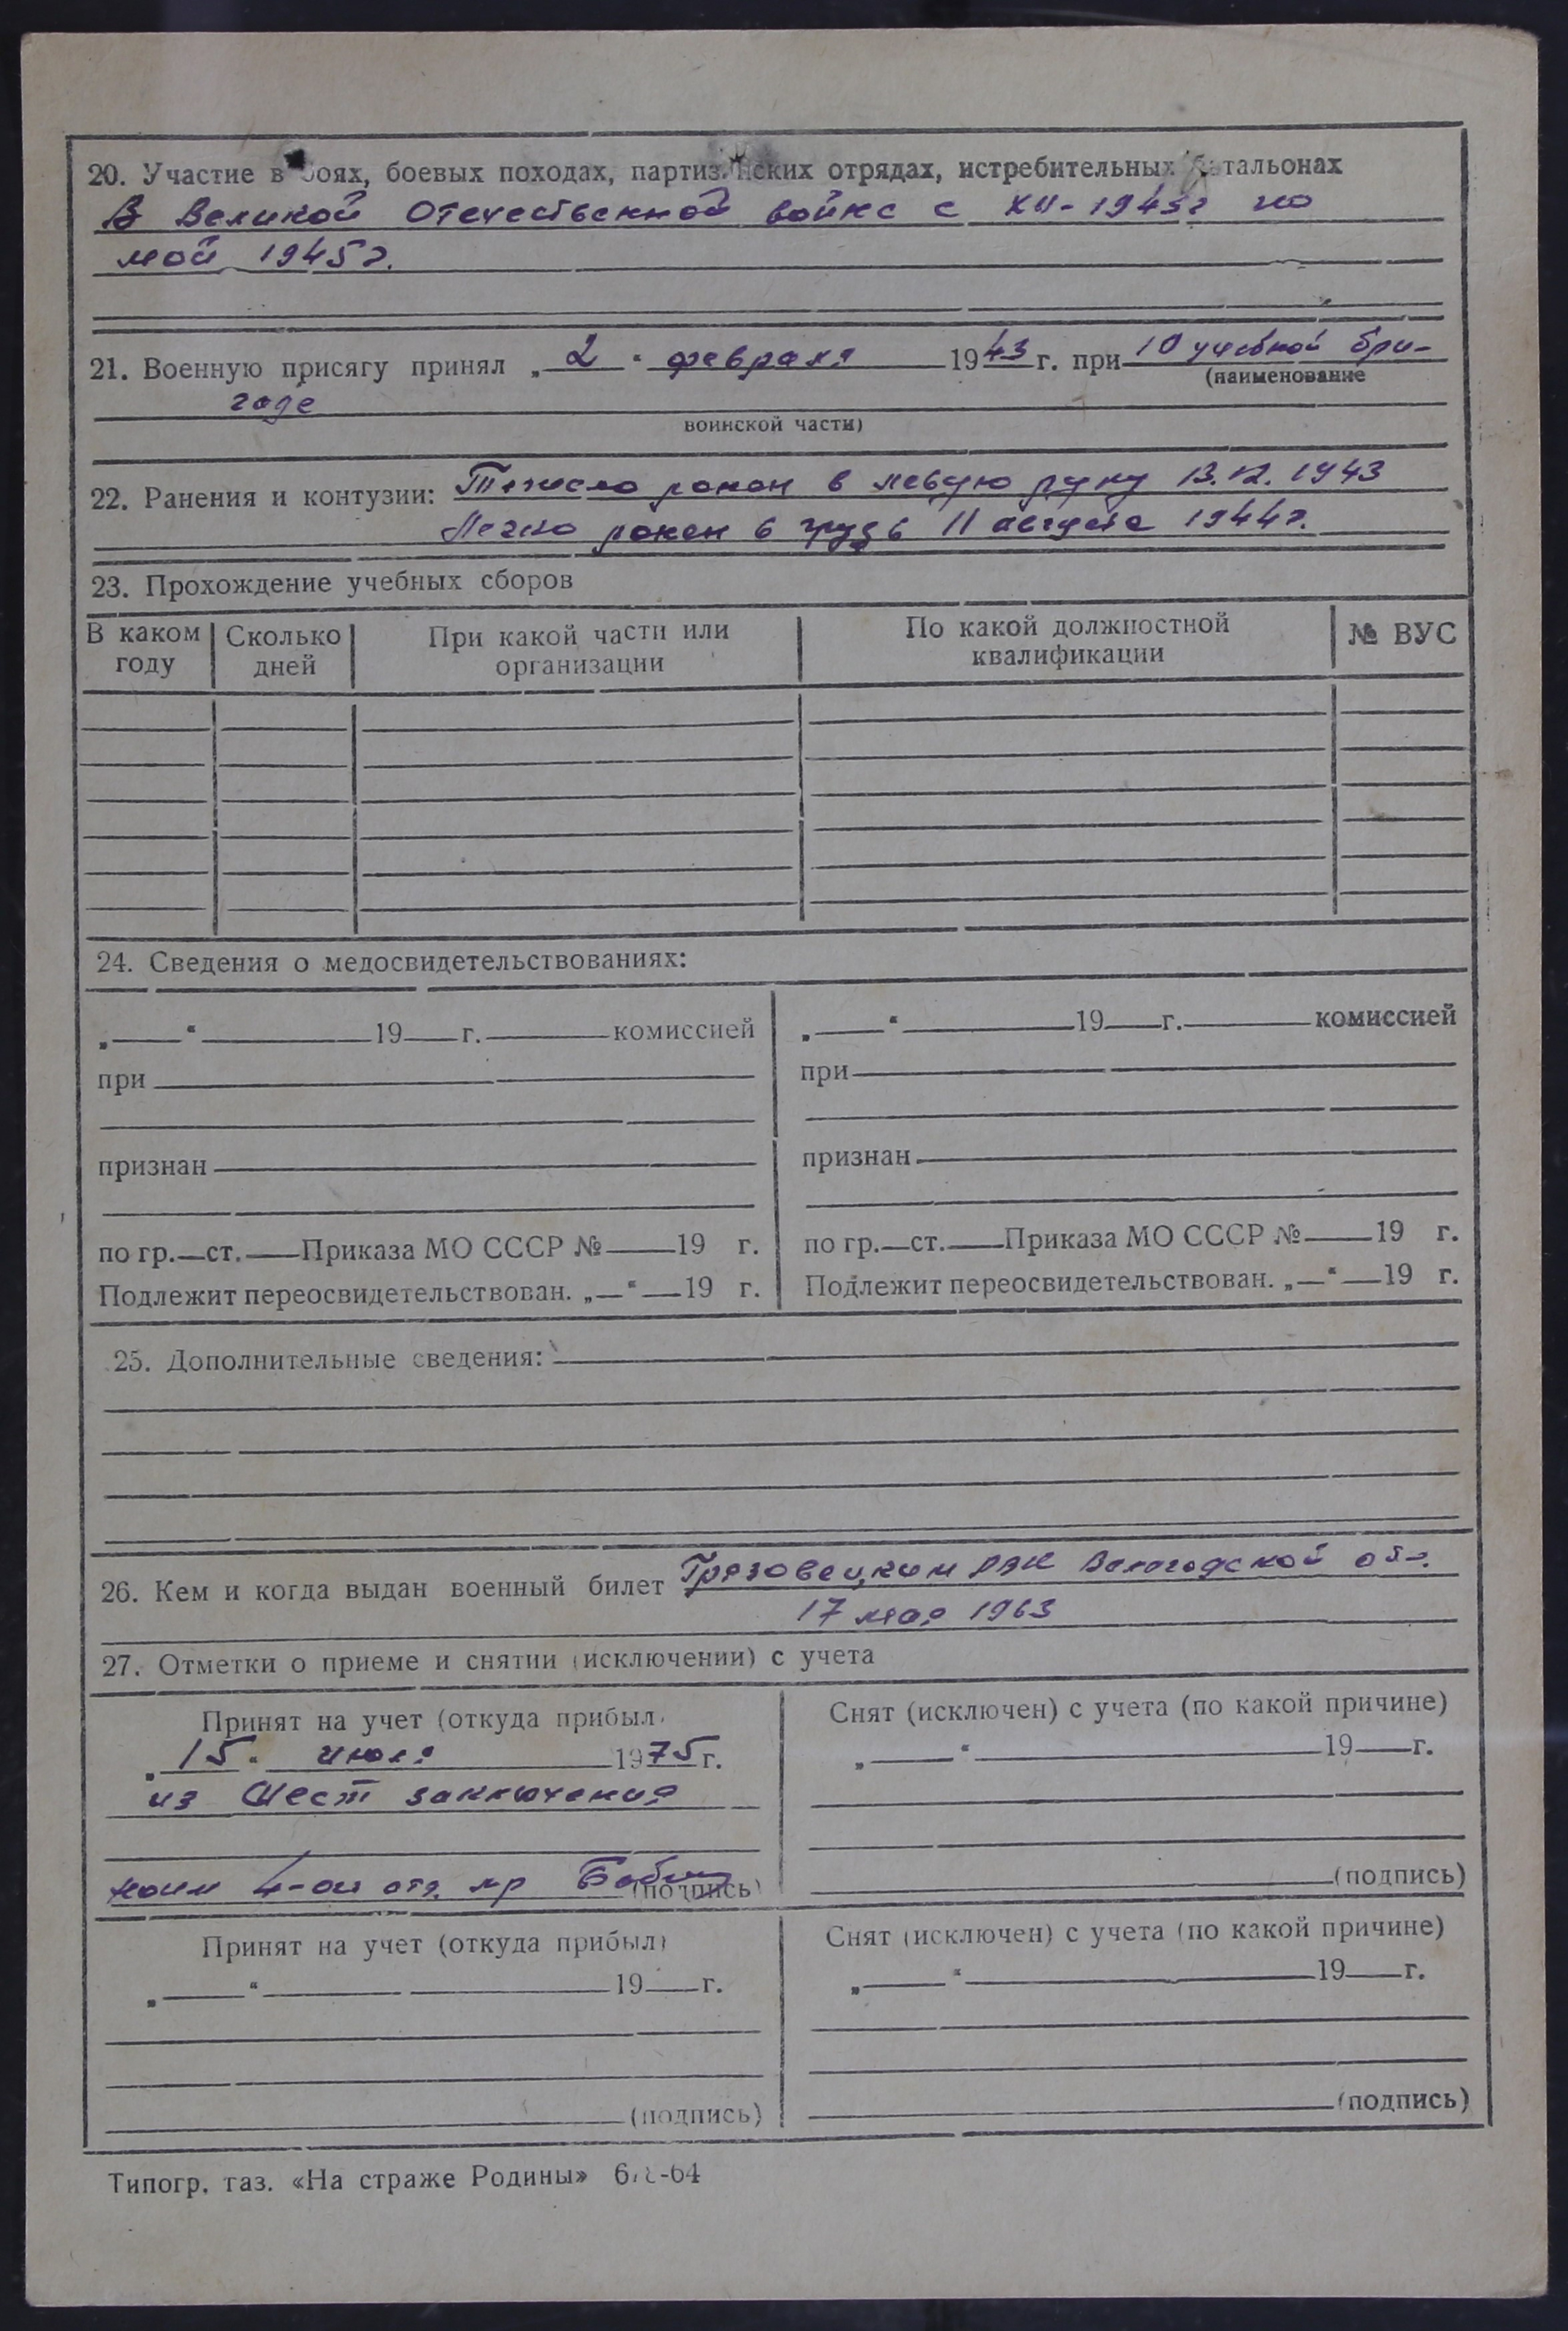 20. Участие в боях, боевых походах, партизанских отрядах, истребительных батальонах
В Великой Отечественной войне с XII-1943г по
май 1945г.
21. Военную присягу принял „2“ февраля 1943 г. при 10 учебной бри-
(наименование
гаде
воинской части)
22. Ранения и контузии: Тяжело ранен в левую руку 13.12.1943
Легко ранен в грудь 11 августа 1944г.
23. Прохождение учебных сборов
В каком году Сколько дней При какой части или организации По какой должностной квалификации № ВУС
24. Сведения о медосвидетельствованиях:
„ “ 19 г. комиссией „ “ 19 г. комиссией
при при
признан признан
по гр. ст. Приказа МО СССР № 19 г. по гр. ст. Приказа МО СССР № 19 г.
Подлежит переосвидетельствован. „ “ 19 г. Подлежит переосвидетельствован. „ “ 19 г.
25. Дополнительные сведения:
26. Кем и когда выдан военный билет Грязовецким РВК Вологодской обл.
17 мая 1963
27. Отметки о приеме и снятии (исключении) с учета
Принят на учет (откуда прибыл) Снят (исключен) с учета (по какой причине)
„15“ июля 1975 г. „ “ 19 г.
из мест заключения
4-ой отд. (подпись) (подпись)
Принят на учет (откуда прибыл) Снят (исключен) с учета (по какой причине)
„ “ 19 г. „ “ 19 г.
(подпись) (подпись)
Типогр. газ. «На страже Родины»